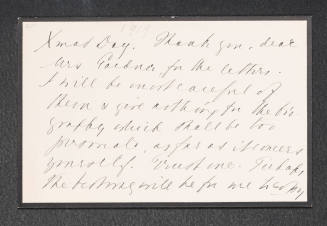 1913
Xmas Day. Thank you, dear
Mrs. Gardner for the letters.
I will be most careful of
them & give nothing for the bi-
ography which shall be too
personal, as far as it concerns
yourself. Trust me. Perhaps
the best will be for me